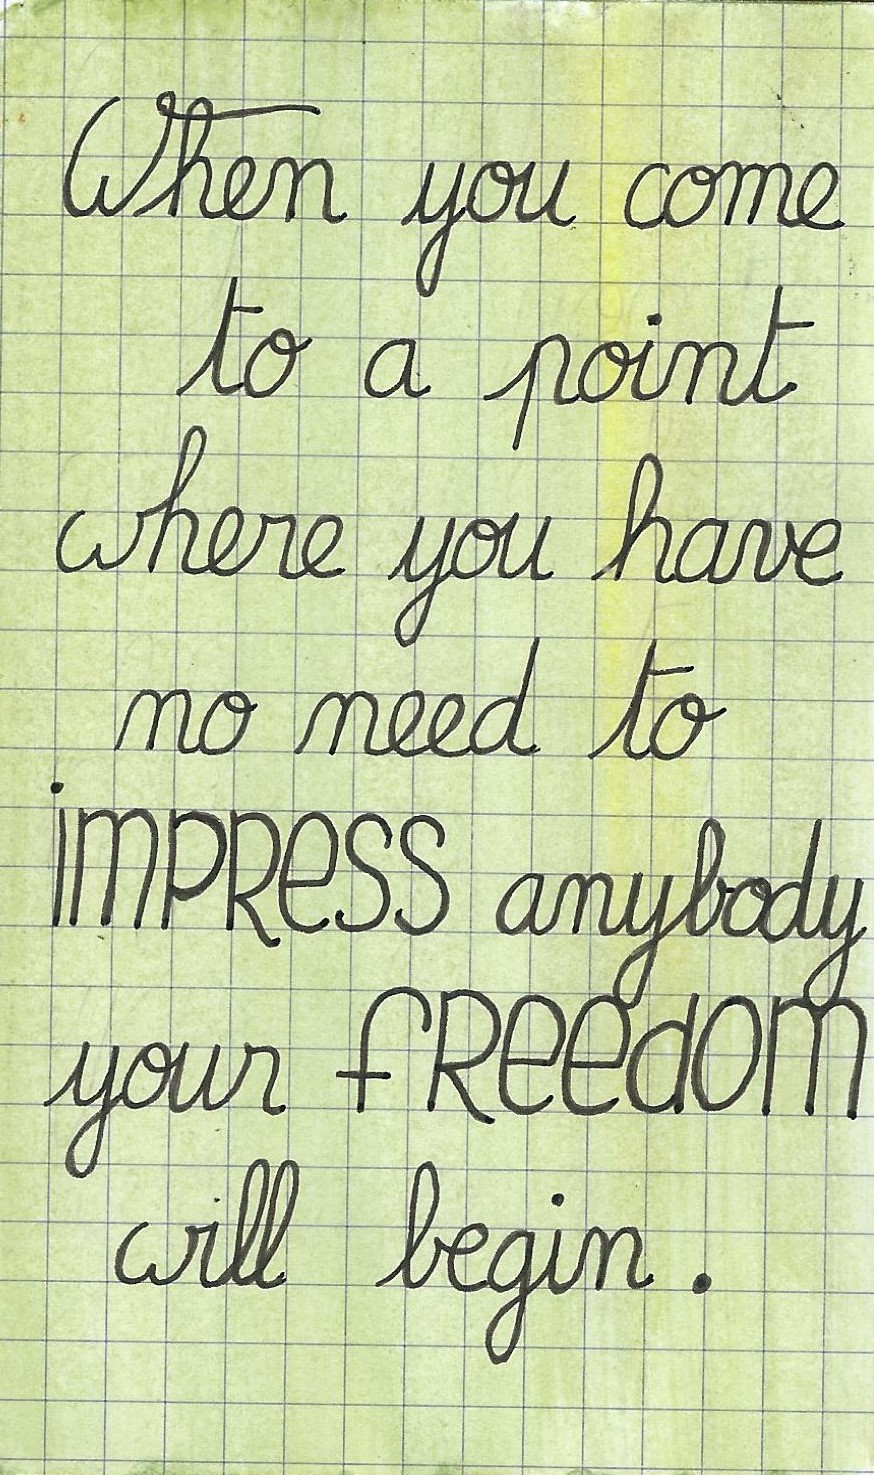 When you come
to a point
where you have
no need to
imPRess anybody
your fReedom
will begin.